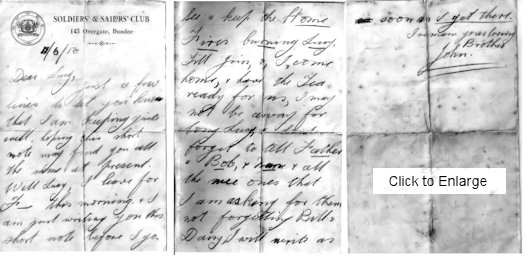 SOLDIERS' & SAILORS' CLUB
143 Overgate, Dundee
Dear Lucy,
Just a few
lines to let you know
that I am keeping quite
well, hoping this short
note may find you all
the same at present.
Well Lucy, I leave for
this morning & I
am just writing you this
short note before I go.
& keep the Home
Fires burning Lucy,
Till Jim, & I, come
home, & have the Tea
ready for us, I may
not be away for
long Lucy, & don't
forget to all Father
& Bob, & & all
the nice ones that
I am asking for them
not forgetting Bill &
Davy, I will write as
soon as I get there.
I remain your loving
Brother
John.
Click to Enlarge